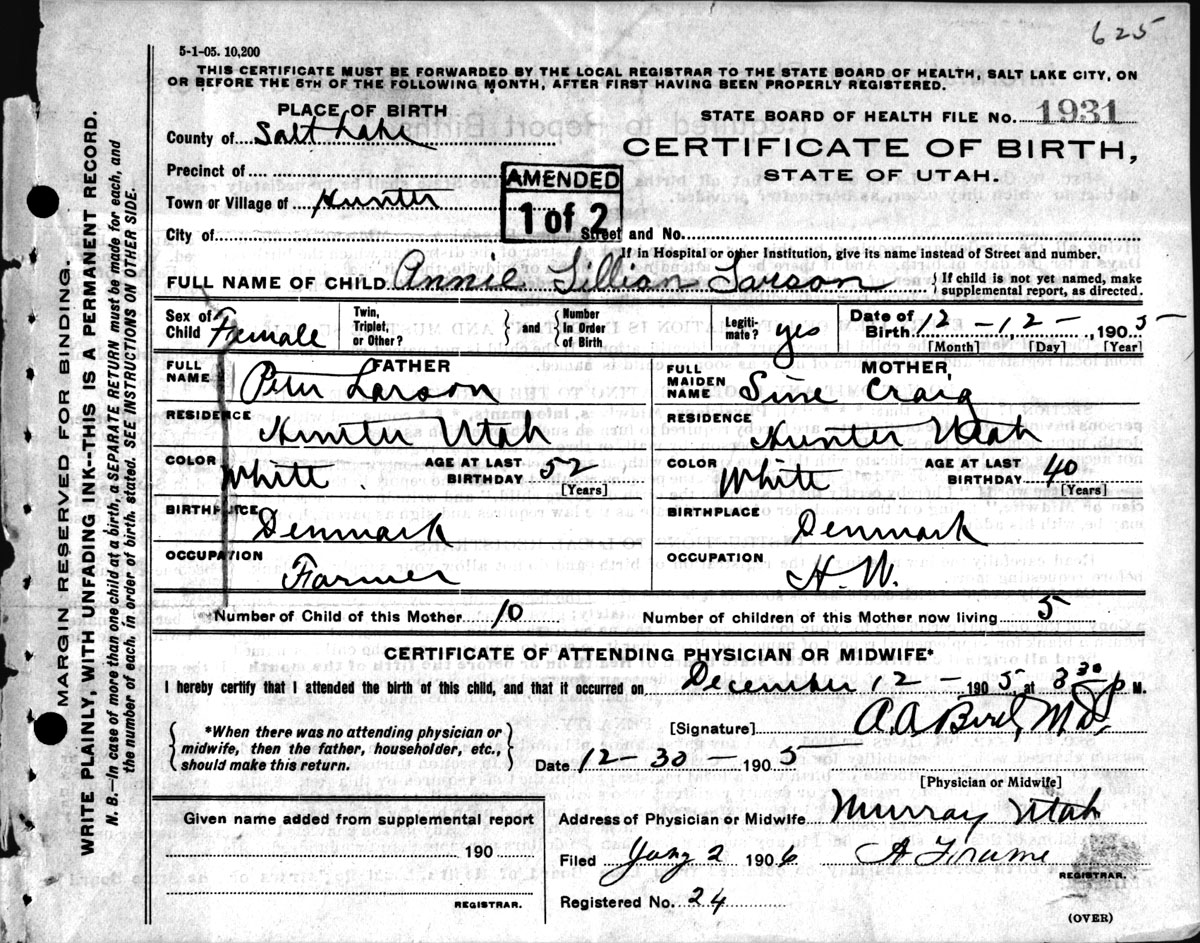 625
5-1-05. 10,200
THIS CERTIFICATE MUST BE FORWARDED BY THE LOCAL REGISTRAR TO THE STATE BOARD OF HEALTH, SALT LAKE CITY, ON
OR BEFORE THE 5TH OF THE FOLLOWING MONTH, AFTER FIRST HAVING BEEN PROPERLY REGISTERED.
PLACE OF BIRTH
STATE BOARD OF HEALTH FILE No. 1931
County of Salt Lake
CERTIFICATE OF BIRTH,
STATE OF UTAH.
Precinct of
AMENDED
1 of 2
Town or Village of Hunter
City of Street and No.
If in Hospital or other Institution, give its name instead of Street and number.
FULL NAME OF CHILD Annie Lillian Larson { If child is not yet named, make
supplemental report, as directed.
Sex of Child Female
Twin, Triplet, or Other? } and { Number In Order of Birth
Legiti-mate? yes
Date of Birth 12 - 12 - , 1905
[Month] [Day] [Year]
FATHER
FULL NAME Peter Larson
RESIDENCE
Hunter Utah
COLOR White AGE AT LAST BIRTHDAY 52 [Years]
BIRTHPLACE
Denmark
OCCUPATION
Farmer
MOTHER
FULL MAIDEN NAME Sine Craig
RESIDENCE
Hunter Utah
COLOR White AGE AT LAST BIRTHDAY 40 [Years]
BIRTHPLACE
Denmark
OCCUPATION
H.W.
Number of Child of this Mother 10 Number of children of this Mother now living 5
CERTIFICATE OF ATTENDING PHYSICIAN OR MIDWIFE*
I hereby certify that I attended the birth of this child, and that it occurred on December 12 - 1905, at 3 30 P M.
{ *When there was no attending physician or
midwife, then the father, householder, etc.,
should make this return. }
[Signature] A. A. Bird, M.D.
Date 12 - 30 - 1905
[Physician or Midwife]
Given name added from supplemental report
190
REGISTRAR.
Address of Physician or Midwife Murray Utah
Filed Jany 2 1906
REGISTRAR.
Registered No. 24
(OVER)
MARGIN RESERVED FOR BINDING.
WRITE PLAINLY, WITH UNFADING INK--THIS IS A PERMANENT RECORD.
N. B.—In case of more than one child at a birth, a SEPARATE RETURN must be made for each, and
the number of each, in order of birth, stated. SEE INSTRUCTIONS ON OTHER SIDE.